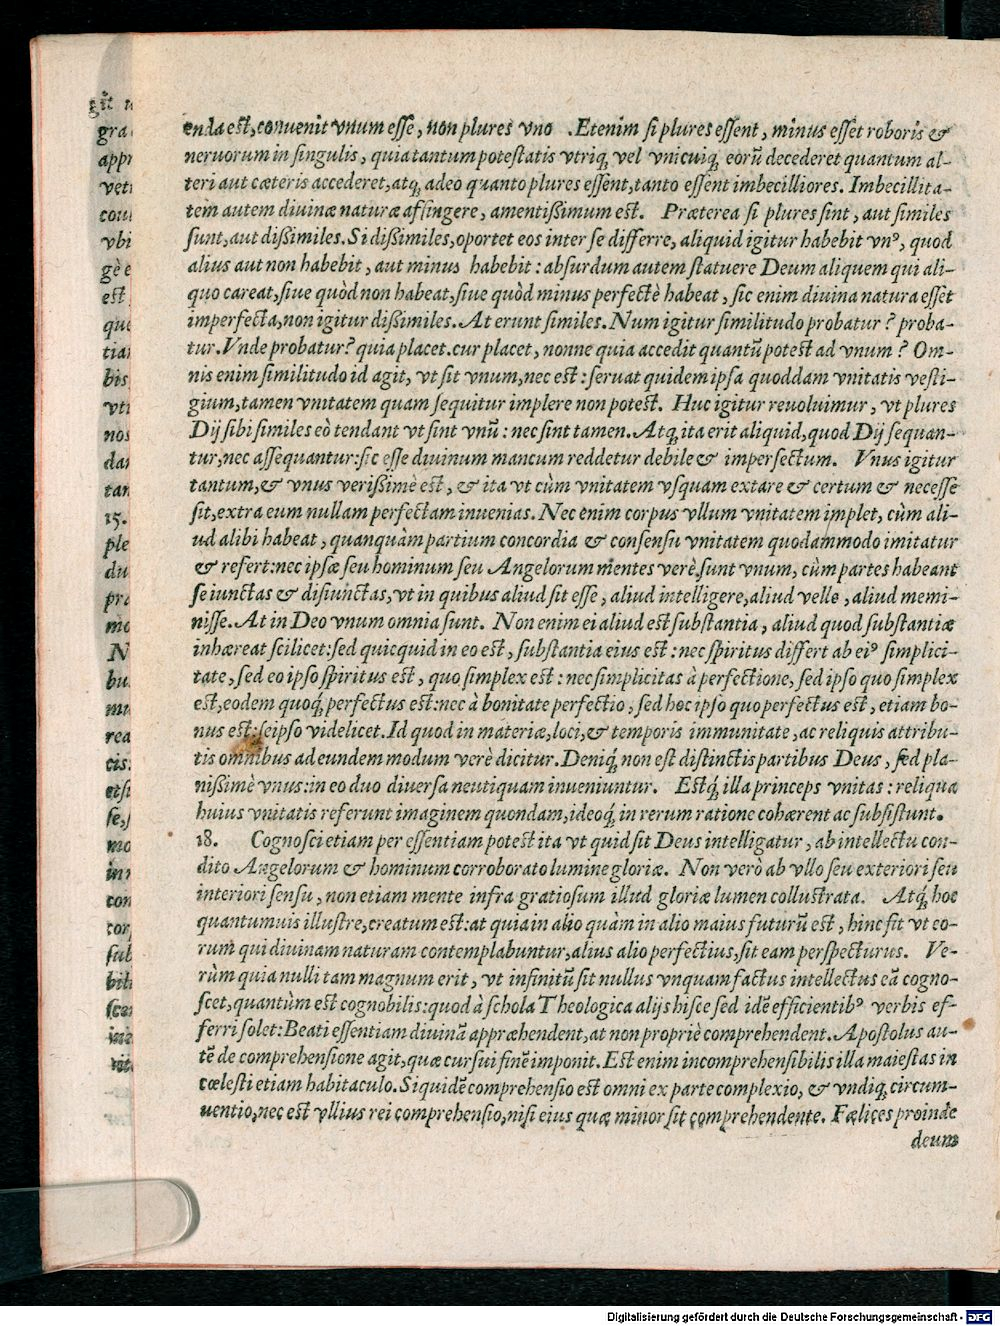 enda est, conuenit vnum esse, non plures vno . Etenim si plures essent, minus esset roboris &
neruorum in singulis, quia tantum potestatis vtriq́, vel vnicuiq́, eorũ decederet quantum al-
teri aut cæteris accederet, atq́, adeo quanto plures essent, tanto essent imbecilliores. Imbecillita-
tem autem diuinæ naturæ affingere, amentißimum est. Præterea si plures sint, aut similes
sunt, aut dißimiles. Si dißimiles, oportet eos inter se differre, aliquid igitur habebit vnꝰ, quod
alius aut non habebit, aut minus habebit: absurdum autem statuere Deum aliquem qui ali-
quo careat, siue quòd non habeat, siue quòd minus perfectè habeat, sic enim diuina natura esset
imperfecta, non igitur dißimiles. At erunt similes. Num igitur similitudo probatur? proba-
tur. Vnde probatur? quia placet. cur placet, nonne quia accedit quantũ potest ad vnum? Om-
nis enim similitudo id agit, vt sit vnum, nec est: seruat quidem ipsa quoddam vnitatis vesti-
gium, tamen vnitatem quam sequitur implere non potest. Huc igitur reuoluimur, vt plures
Dij sibi similes eò tendant vt sint vnũ: nec sint tamen. Atq́, ita erit aliquid, quod Dij sequan-
tur, nec assequantur: sic esse diuinum mancum reddetur debile & imperfectum. Vnus igitur
tantum, & vnus verißimè est, & ita vt cùm vnitatem vsquam extare & certum & necesse
sit, extra eum nullam perfectam inuenias. Nec enim corpus vllum vnitatem implet, cùm ali-
ud alibi habeat, quanquàm partium concordia & consensu vnitatem quodammodo imitatur
& refert: nec ipsæ seu hominum seu Angelorum mentes verè sunt vnum, cùm partes habeant
seiunctas & disiunctas, vt in quibus aliud sit esse, aliud intelligere, aliud velle, aliud memi-
nisse. At in Deo vnum omnia sunt. Non enim ei aliud est substantia, aliud quod substantiæ
inhæreat scilicet: sed quicquid in eo est, substantia eius est: nec spiritus differt ab eiꝰ simplici-
tate, sed eo ipso spiritus est, quo simplex est: nec simplicitas à perfectione, sed ipso quo simplex
est, eodem quoq́, perfectus est: nec à bonitate perfectio, sed hoc ipso quo perfectus est, etiam bo-
nus est: seipso videlicet. Id quod in materiæ, loci, & temporis immunitate, ac reliquis attribu-
tis omnibus ad eundem modum verè dicitur. Deniq́, non est distinctis partibus Deus, sed pla-
nißimè vnus: in eo duo diuersa neutiquam inueniuntur. Estq́, illa princeps vnitas: reliqua
huius vnitatis referunt imaginem quondam, ideoq́, in rerum ratione cohærent ac subsistunt.
18. Cognosci etiam per essentiam potest ita vt quid sit Deus intelligatur, ab intellectu con-
dito Angelorum & hominum corroborato lumine gloriæ. Non verò ab vllo seu exteriori seu
interiori sensu, non etiam mente infra gratiosum illud gloriæ lumen collustrata. Atq́, hoc
quantumuis illustre, creatum est: at quia in alio quàm in alio maius futurũ est, hinc fit vt eo-
rum qui diuinam naturam contemplabuntur, alius alio perfectius, sit eam perspecturus. Ve-
rùm quia nulli tam magnum erit, vt infinitũ sit nullus vnquam factus intellectus eã cogno-
scet, quantùm est cognobilis: quod à schola Theologica alijs hisce sed idẽ efficientibꝰ verbis ef-
ferri solet: Beati essentiam diuinã appræhendent, at non propriè comprehendent. Apostolus au-
tẽ de comprehensione agit, quæ cursui finẽ imponit. Est enim incomprehensibilis illa maiestas in
cœlesti etiam habitaculo. Siquidẽ comprehensio est omni ex parte complexio, & vndiq́, circum-
uentio, nec est vllius rei comprehensio, nisi eius quæ minor sit comprehendente. Fælices proinde
deum
Digitalisierung gefördert durch die Deutsche Forschungsgemeinschaft - DFG